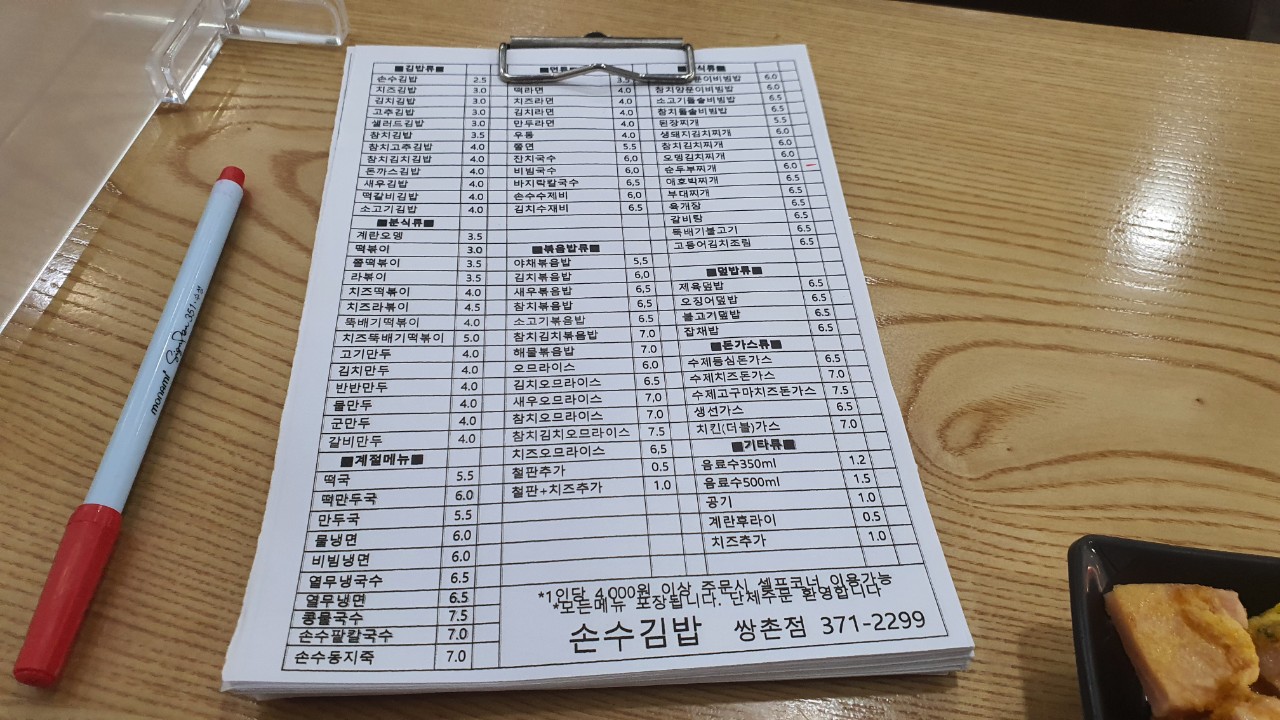 ■김밥류■
손수김밥 2.5
치즈김밥 3.0
김치김밥 3.0
고추김밥 3.0
샐러드김밥 3.0
참치김밥 3.5
참치고추김밥 4.0
참치김치김밥 4.0
돈까스김밥 4.0
새우김밥 4.0
떡갈비김밥 4.0
소고기김밥 4.0
■분식류■
계란오뎅 3.5
떡볶이 3.0
쫄떡볶이 3.5
라볶이 3.5
치즈떡볶이 4.0
치즈라볶이 4.5
뚝배기떡볶이 4.0
치즈뚝배기떡볶이 5.0
고기만두 4.0
김치만두 4.0
반반만두 4.0
물만두 4.0
군만두 4.0
갈비만두 4.0
■계절메뉴■
떡국 5.5
떡만두국 6.0
만두국 5.5
물냉면 6.0
비빔냉면 6.0
열무냉국수 6.5
열무냉면 6.5
콩물국수 7.5
손수팥칼국수 7.0
손수동지죽 7.0
3.5
떡라면 4.0
치즈라면 4.0
김치라면 4.0
만두라면 4.0
우동 4.0
쫄면 5.5
잔치국수 6,0
비빔국수 6,0
바지락칼국수 6,5
손수수제비 6,0
김치수재비 6.5
■볶음밥류■
야채볶음밥 5,5
김치볶음밥 6,0
새우볶음밥 6,5
참치볶음밥 6,5
소고기볶음밥 6.5
참치김치볶음밥 7.0
해물볶음밥 7.0
오므라이스 6.0
김치오므라이스 6.5
새우오므라이스 7,0
참치오므라이스 7,0
참치김치오므라이스 7.5
치즈오므라이스 6,5
철판추가 0.5
철판+치즈추가 1.0
6.0
참치양푼이비빔밥 6.0
소고기돌솥비빔밥 6.5
참치돌솥비빔밥 6.5
된장찌개 5.5
생돼지김치찌개 6.0
참치김치찌개 6.0
오뎅김치찌개 6.0
순두부찌개 6.0
애호박찌개 6.5
부대찌개 6.5
육개장 6.5
갈비탕 6.5
뚝배기불고기 6.5
고등어김치조림 6.5
■덮밥류■
제육덮밥 6.5
오징어덮밥 6.5
불고기덮밥 6.5
잡채밥 6.5
■돈가스류■
수제등심돈가스 6.5
수제치즈돈가스 7.0
수제고구마치즈돈가스 7.5
생선가스 6.5
치킨(더블)가스 7.0
■기타류■
음료수350ml 1.2
음료수500ml 1.5
공기 1.0
계란후라이 0.5
치즈추가 1.0
*1인당 4,000원 이상 주문시 셀프코너 이용가능
*모든메뉴 포장됩니다. 단체주문 환영합니다
손수김밥 쌍촌점 371-2299
monami